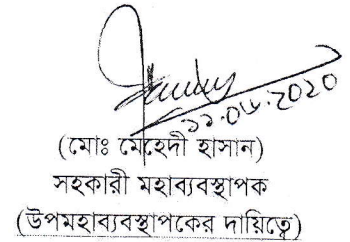 ১১.০৬.২০২০
(মোঃ মেহেদী হাসান)
সহকারী মহাব্যবস্থাপক
(উপমহাব্যবস্থাপকের দায়িত্বে)